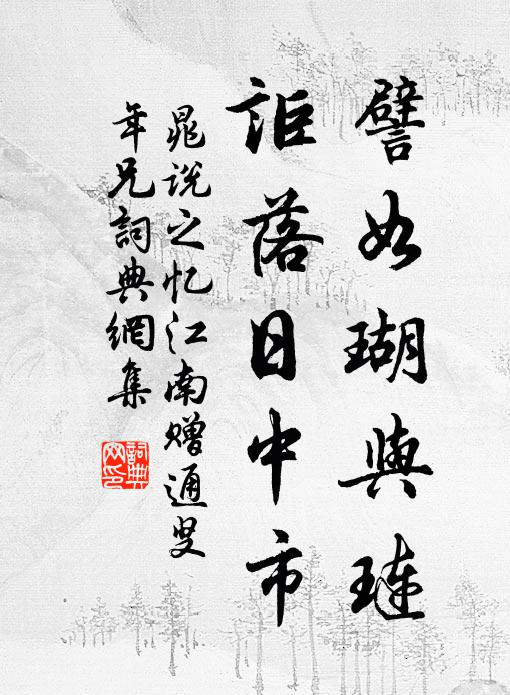 譬如瑚與璉
詎落日中市
晁说之忆江南赠通叟
年兄詞典網集
詞典
网印